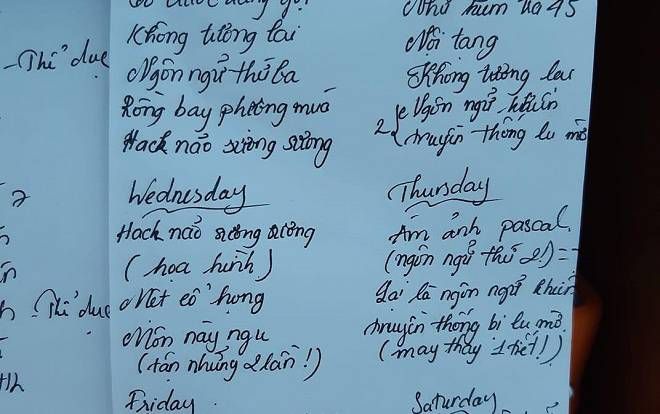 Thể dục
Không tưởng lai
Ngôn ngữ thứ ba
Rồng bay phượng múa
Hack não sương sương
Như hùm
45
Nội tang
Không tưởng lai
Ngôn ngữ khiến
2
truyền thống lu mờ
Wednesday
Hack não sương sương
(họa hình)
Thể dục
Mệt cổ họng
Môn này ngu
(tận những 2 lần!)
Friday
Thursday
Ám ảnh pascal.
(ngôn ngữ thứ 2!)
Lại là ngôn ngữ khiến
truyền thống bị lu mờ.
(may thay 1 tiết!)
Saturday